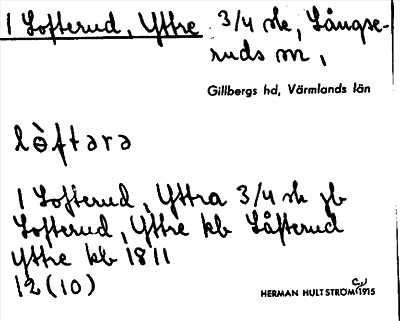 1 Lofterud, Yttre 3/4 sk, Långse-
ruds sn,
Gillbergs hd, Värmlands län
lòftərə
1 Lofterud, Yttra 3/4 sk jb
Lofterud, Yttre kb Låfterud
yttre kb 1811
12(10)
HERMAN HULTSTRÖM 1915